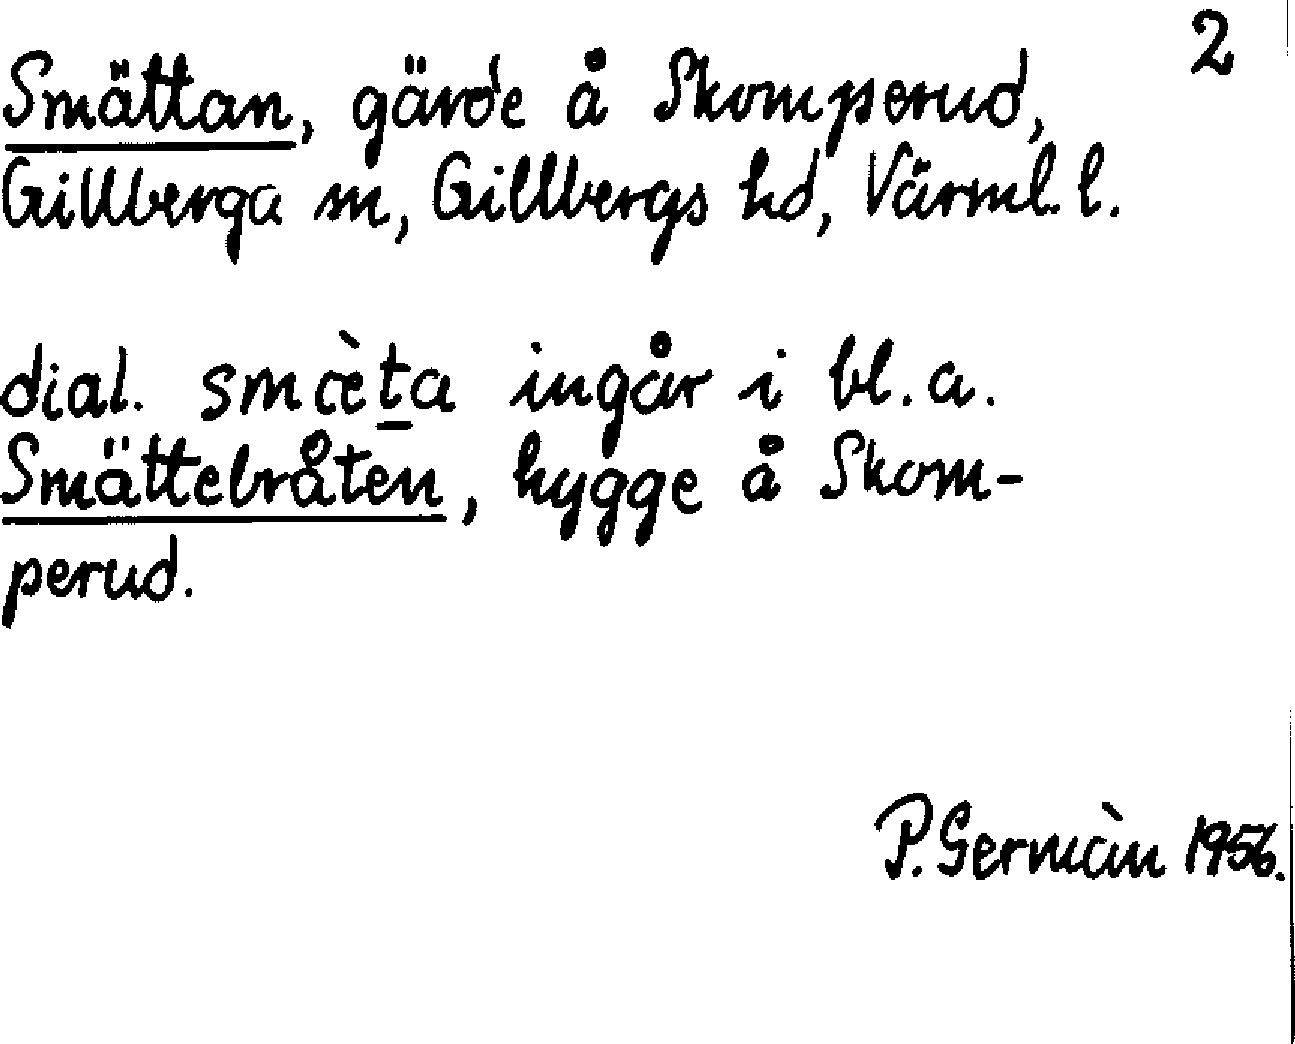 2
Smättan, gärde å Skomperud,
Gillberga sn, Gillbergs hd, Värml. l.
dial. smæ̀ṯa ingår i bl.a.
Smättebråten, hygge å Skom-
perud.
P. Germùn 1956.